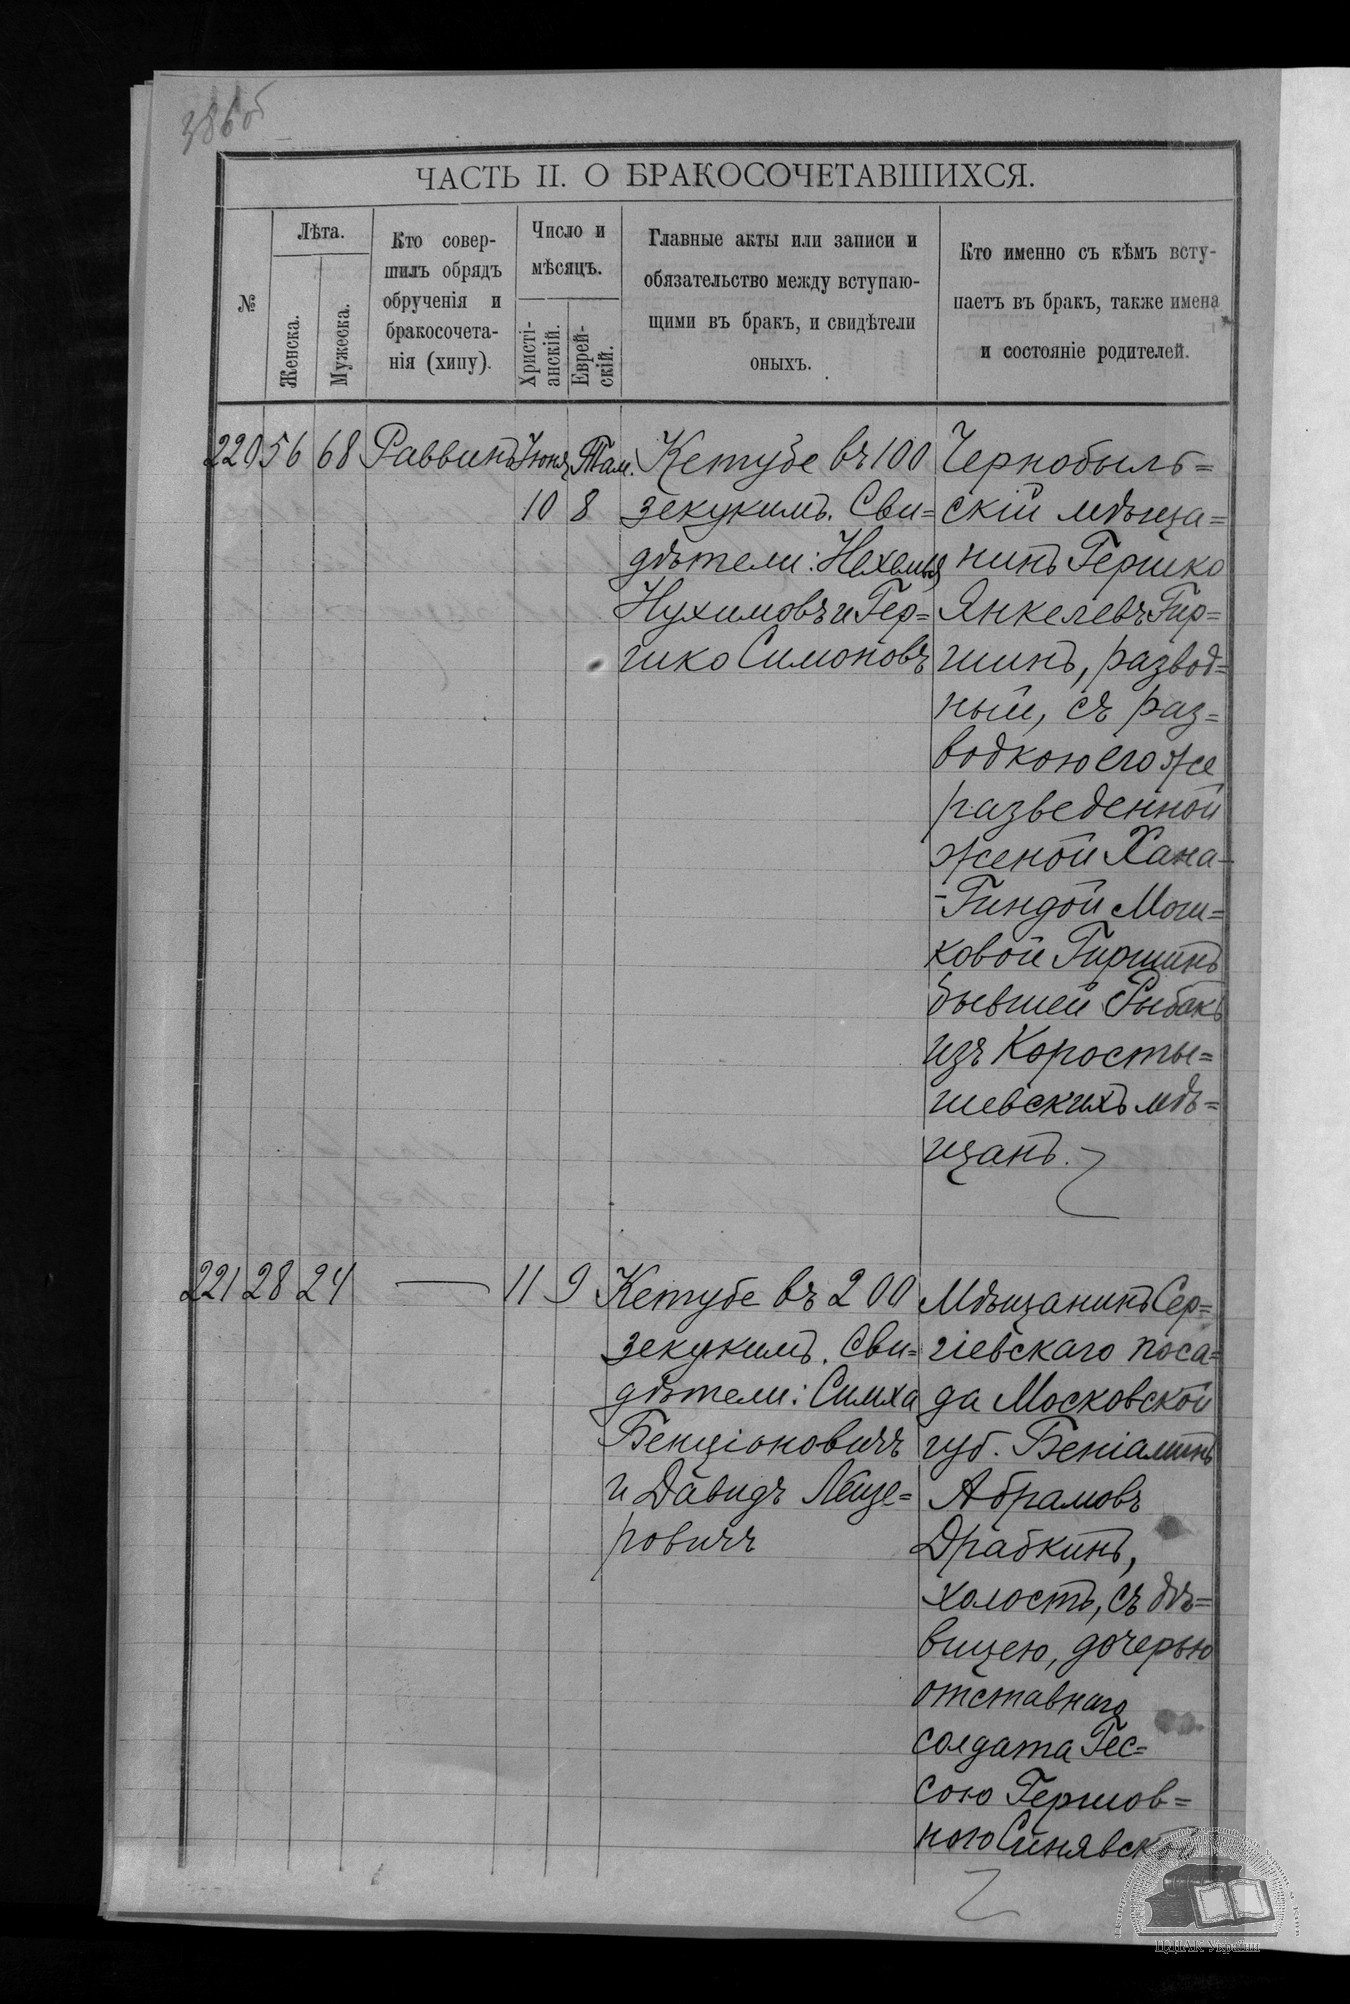 386об
ЧАСТЬ II. О БРАКОСОЧЕТАВШИХСЯ.
№
Лѣта.
Женска.
Мужеска.
Кто совер-
шилъ обрядъ
обрученія и
бракосочета-
нія (хипу).
Число и
мѣсяцъ.
Христі-
анскій.
Еврей-
скій.
Главные акты или записи и
обязательство между вступаю-
щими въ бракъ, и свидѣтели
оныхъ.
Кто именно съ кѣмъ всту-
паетъ въ бракъ, также имена
и состояніе родителей.
220 56 68 Раввинъ Іюня 10 Там. 8
Кетубе въ 100
зекукимъ. Сви=
дѣтели: Нехемья
Нухимовъ и Гер=
шко Симоновъ
Чернобыль=
скій мѣща=
нинъ Гершко
Янкелевъ Гир=
шинъ, развод=
ный, съ раз=
водкою его же
разведенной
женой Хана-
-Гиндой Мош=
ковой Гиршинъ
бывшей Рыбакъ
изъ Коросты=
шевскихъ мѣ=
щанъ.
221 28 24 — 11 9
Кетубе въ 200
зекукимъ. Сви=
дѣтели: Симха
Бенціоновичъ
и Давидъ Лейзе=
ровичъ
Мѣщанинъ Сер=
гіевскаго поса=
да Московской
губ. Беніаминъ
Абрамовъ
Драбкинъ,
холостъ, съ дѣ=
вицею, дочерью
отставнаго
солдата Гес=
сою Гершов=
ною Синявской
ЦДІАК України